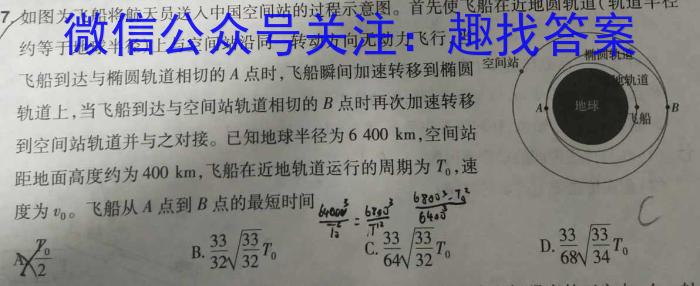 7. 如图为飞船将航天员送入中国空间站的过程示意图。首先使飞船在近地圆轨道(轨道半径
约等于
微信公众号关注：趣找答案
飞船到达与椭圆轨道相切的 A 点时,飞船瞬间加速转移到椭圆
轨道上,当飞船到达与空间站轨道相切的 B 点时再次加速转移
到空间站轨道并与之对接。已知地球半径为 6 400 km,空间站
距地面高度约为 400 km,飞船在近地轨道运行的周期为 T₀,速
度为 v₀。飞船从 A 点到 B 点的最短时间
空间站
椭圆轨道
地轨道
A
地球
B
飞船
6400³/T₀² = 6800³/T'²
6800³·T₀²/6400³
C
A. T₀/2
B. 33/32 √(33/32) T₀
C. 33/64 √(33/32) T₀
D. 33/68 √(33/34) T₀